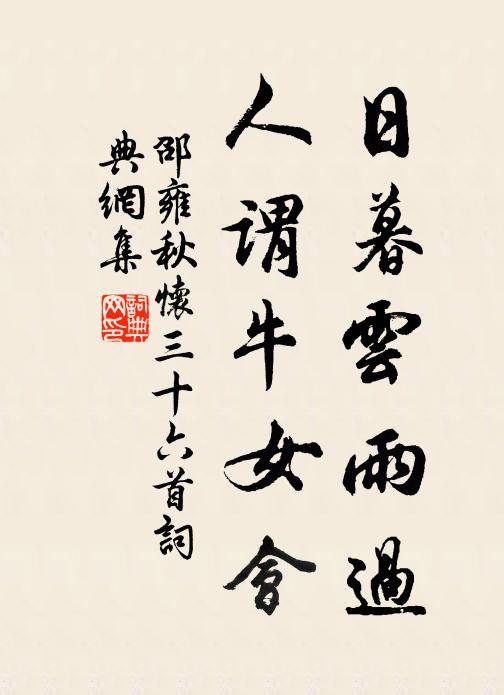 日暮雲雨過
人謂牛女會
邵雍秋懷三十六首詞
典網集
詞典网印